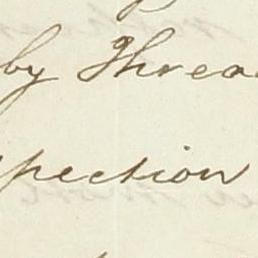 by Threa
pection